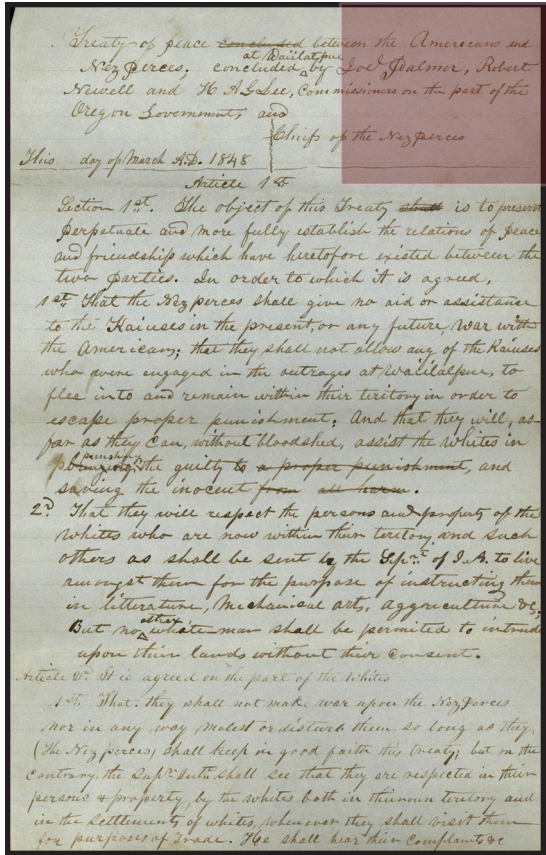 Treaty of peace concluded between the Americans and
at Waiilatpue
Nez perces. concluded by Joel Palmer, Robert
Newell and H A G Lee, Commissioners on the part of the
Oregon Government, and
Chiefs of the Nez perces
This day of March A.D. 1848
Article 1st
Section 1st. The object of this Treaty shall is to preserve
perpetuate and more fully establish the relations of peace
and friendship which have heretofore existed between the
two parties. In order to which it is agreed,
1st. That the Nez perces shall give no aid or assistance
to the Kaiuses in the present, or any future, War with
the Americans; that they shall not allow any of the Kaiuses
who were engaged in the outrages at Waiilatpue, to
flee into and remain within their teritory in order to
escape proper punishment. And that they will, as
far as they can, without bloodshed, assist the Whites in
punishing
the guilty to a proper punishment, and
saving the inocent from all harm.
2d. That they will respect the persons and property of the
Whites who are now within their teritory and such
others as shall be sent by the of I.A. to live
amongst them for the purpose of instructing them
in litterature, Mechanical arts, aggriculture &c;
other
But no white man shall be permited to intrude
upon their lands without their consent.
Article 2d. It is agreed on the part of the Whites
1st. That. they shall not make war upon the Nez Perces
nor in any way molest or disturb them, so long as they
(The Nez perces) shall keep in good faith this treaty; but on the
contrary, the Supr. Intn. shall see that they are respected in their
persons & property, by the whites both in their own teritory and
in the Settlements of whites, whenever they shall visit them
for purposes of Trade. He shall hear their Complaints &c